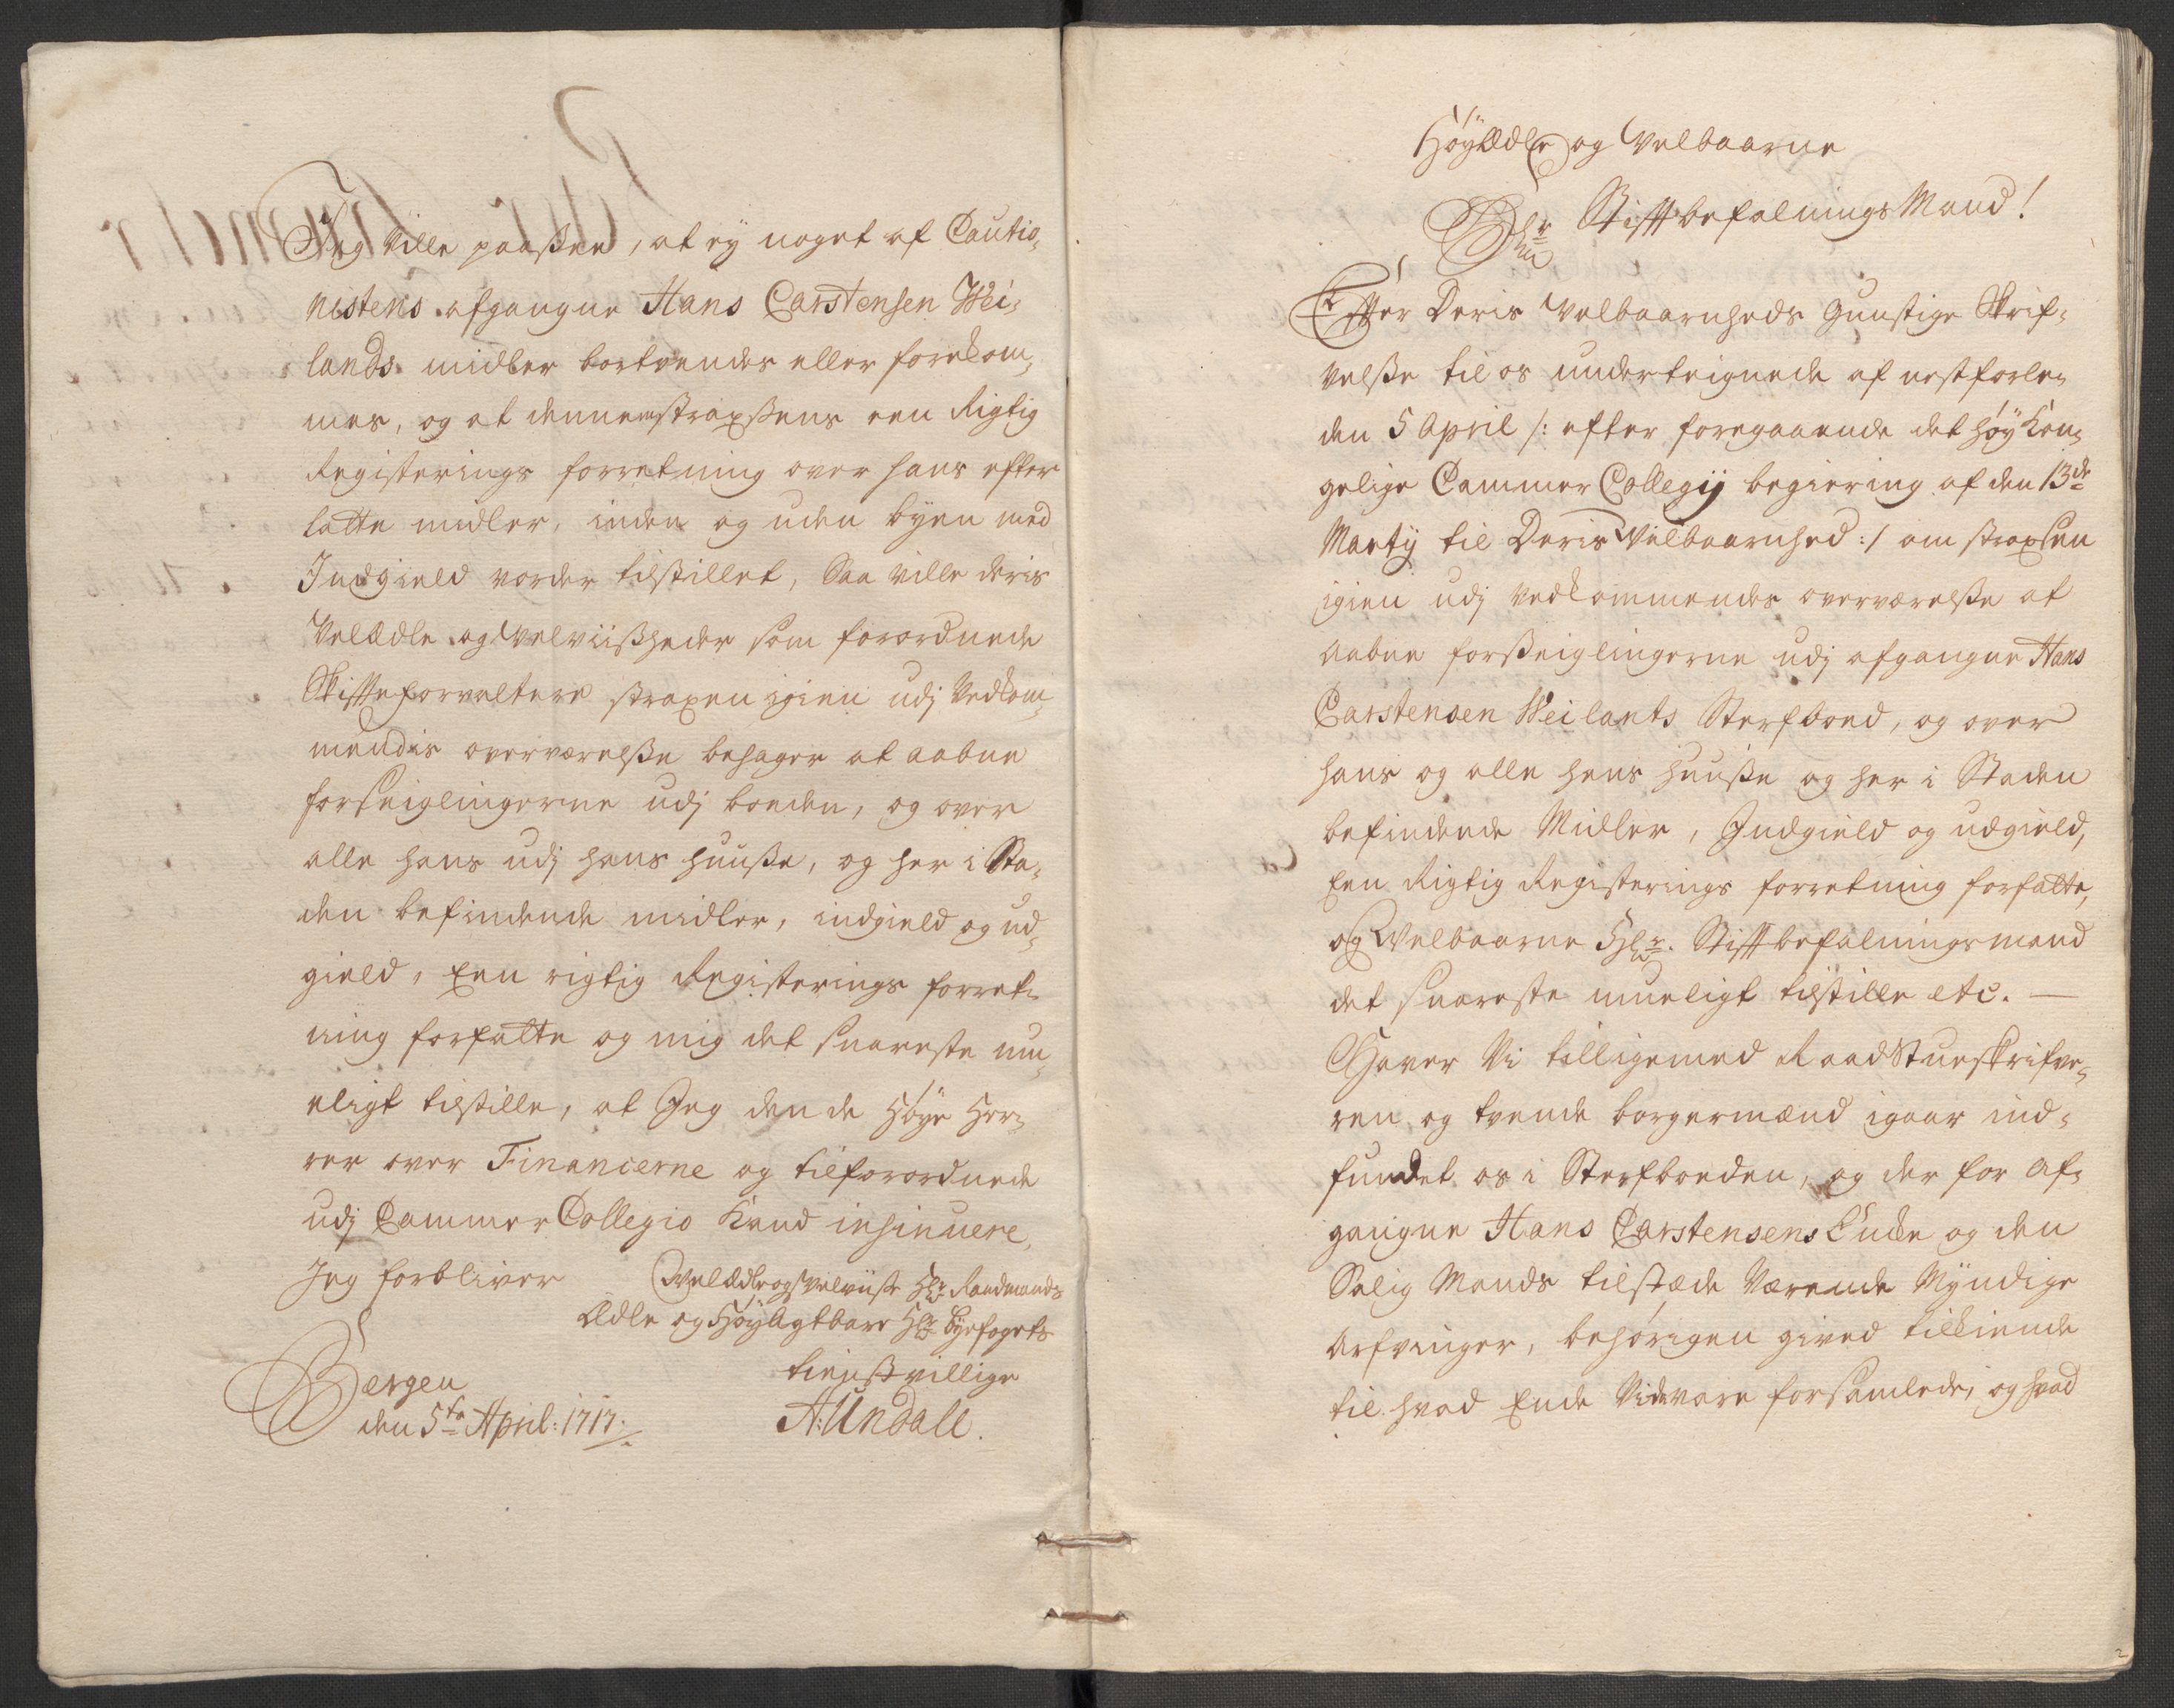 Jeg Ville paaßee, at ey noget af Cautio,
nistens afgangne Hans Carstensen Wei,
lands midler bortvendes eller forekom,
mes, og at denne straxßens een Rigtig
Registerings forretning over hans efter
latte midler, inden og uden byen med
Indgield vorder tilstillet, Saa ville deris
VelÆdle og Velviißheder som forordnede
Skifteforvaltere straxen igien udj Vedkom,
mendis overværelße behager at aabne
forseiglingerne udj boeden, og over
alle hans udj hans huuße, og her i Sta,
den befindende midler, indgield og ud,
gield, Een rigtig Registerings forret,
ning forfatte og mig det snareste mu,
eligt tilstille, at Jeg den de Høye Her,
rer over Financerne og tilforordnede
udj Cammer Collegio Kand insinuere,
Jeg forbliver
VelÆdle og Velviise Hr Raadmands
Ædle og HøyAgtbare Hr Byefogets
tienstvillige
Bergen
den 5te April: 1717.
A: Undall.
HøyÆdle og Velbaarne
Hr Stiftbefalnings Mand!
Efter Deris Velbaarnheds Gunstige Skrif,
velße til os underteignede af nestforle,
den 5 April /: efter foregaaende det høy Kon,
gelige Cammer Collegij begiering af den 13de
Martij til Deris Velbaarnhed :/ om straxsen
igien udj Vedkommendes overværelße at
aabne forßeiglingerne udj afgangne Hans
Carstensen Weilants Sterfboed, og over
hans og alle hans huuße og her i Staden
befindende Midler, Indgield og udgield,
Een Rigtig Registerings forretning forfatte,
og Velbaarne Hr. Stiftbefalningsmand
det snareste mueligt tilstille etc. —
Hafver Vi tilligemed Raadstueskrifve,
ren og tvende borgermænd igaar ind,
fundet os i Sterfboeden, og der for Af,
gangne Hans Carstensens Encke og den
Salig Mands tilstæde Værende Myndige
Arfvinger, behørigen gived tilkiende
til hvad Ende Vi da vare forsamlede, og hvad
2